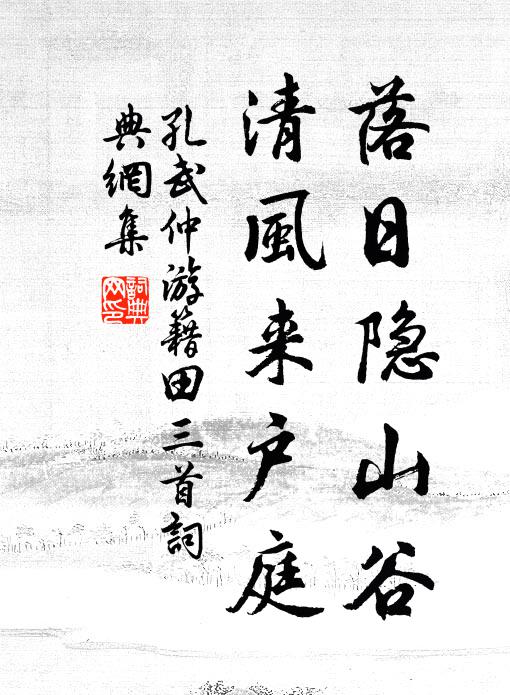 落日隐山谷
清風来户庭
孔武仲游籍田三首詞
典網集
詞典
网印